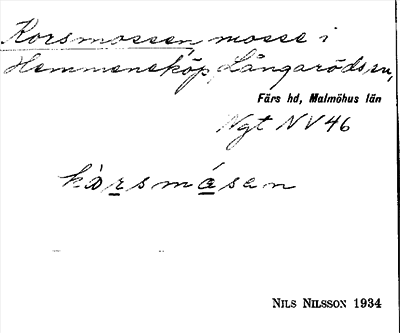 Korsmossen, mosse i
Hemmeneköp, Långaröds sn,
Färs hd, Malmöhus län
Ngt NV 46
kòrsmásen
NILS NILSSON 1934